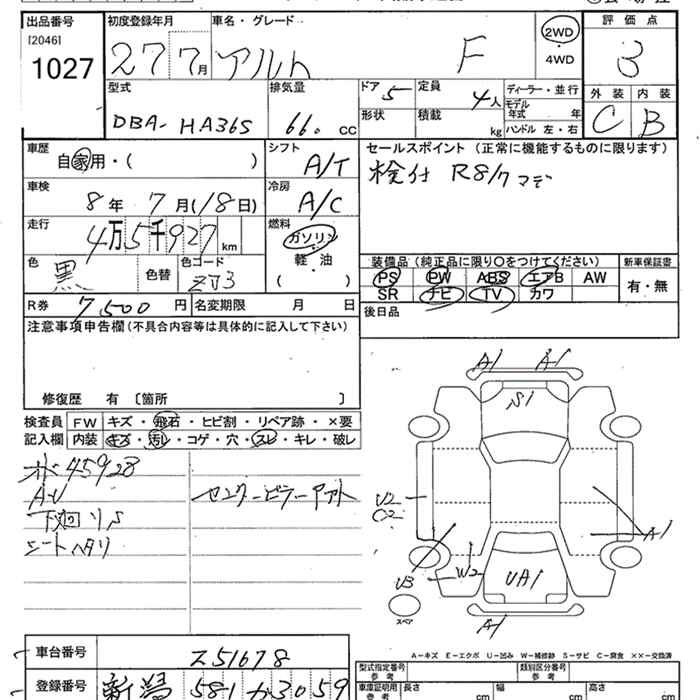 出品番号 初度登録年月 車名・グレード 2WD・4WD 評価点
[2046]
1027 27 7月 アルト F 3
型式 排気量 ドア 5 定員 4人 ディーラー・並行 外装 内装
DBA-HA36S 66。CC 形状 積載 kg モデル年式 年 ハンドル 左・右 C B
車歴 シフト セールスポイント (正常に機能するものに限ります)
自家用・( ) A/T 検付 R8/7マデ
車検 冷房
8年 7月(18日) A/C
走行 燃料
4万5千927km ガソリン・軽・油 ( )
色 黒 色替 色コード ZJ3
装備品(純正品に限り〇をつけてください) 新車保証書
PS PW ABS エアB AW 有・無
SR ナビ TV カワ
R券 7,500円 名変期限 月 日 後日品
注意事項申告欄(不具合内容等は具体的に記入して下さい)
修復歴 有 〔箇所 〕
検査員記入欄 FW キズ・飛石・ヒビ割・リペア跡・×要
内装 キズ・汚れ・コゲ・穴・スレ・キレ・破レ
45928
A・U センターピラーアト
下廻リS
シートヘタリ
A1 A1
S1
U2
A1
W2
UA1
UB
A1
スペア
A-キズ E-エクボ U-凹み W-補修跡 S-サビ C-腐食 ××-交換済
車台番号 Z51678
登録番号 新潟 581 か 3059
型式指定番号 参考 類別区分番号 参考
車庫証明用 参考 長さ cm 幅 cm 高さ cm